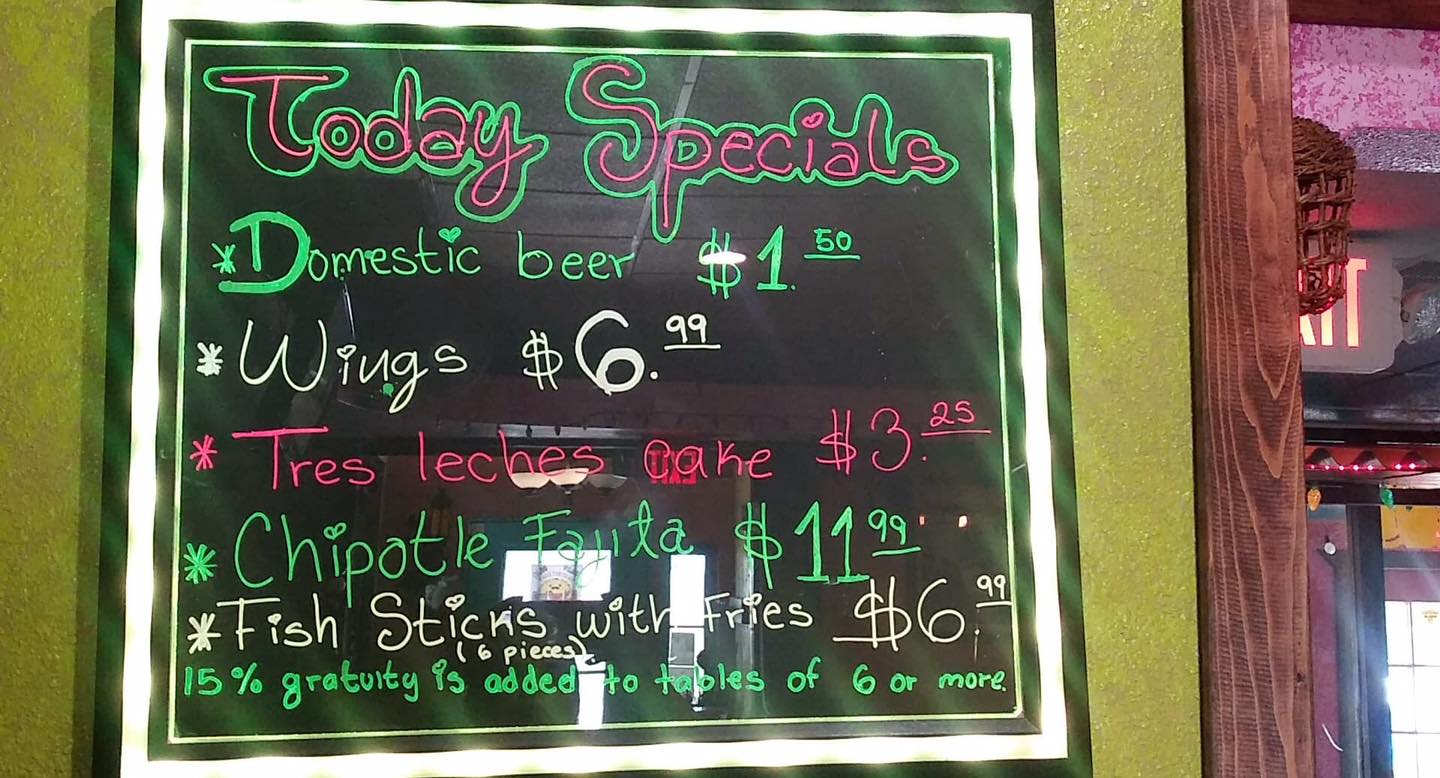 Today Specials
*Domestic beer $1.50
*Wings $6.99
*Tres leches cake $3.25
*Chipotle Fajita $11 99
*Fish Sticks with Fries $6.99
(6 pieces)
15% gratuity is added to tables of 6 or more.
EXIT